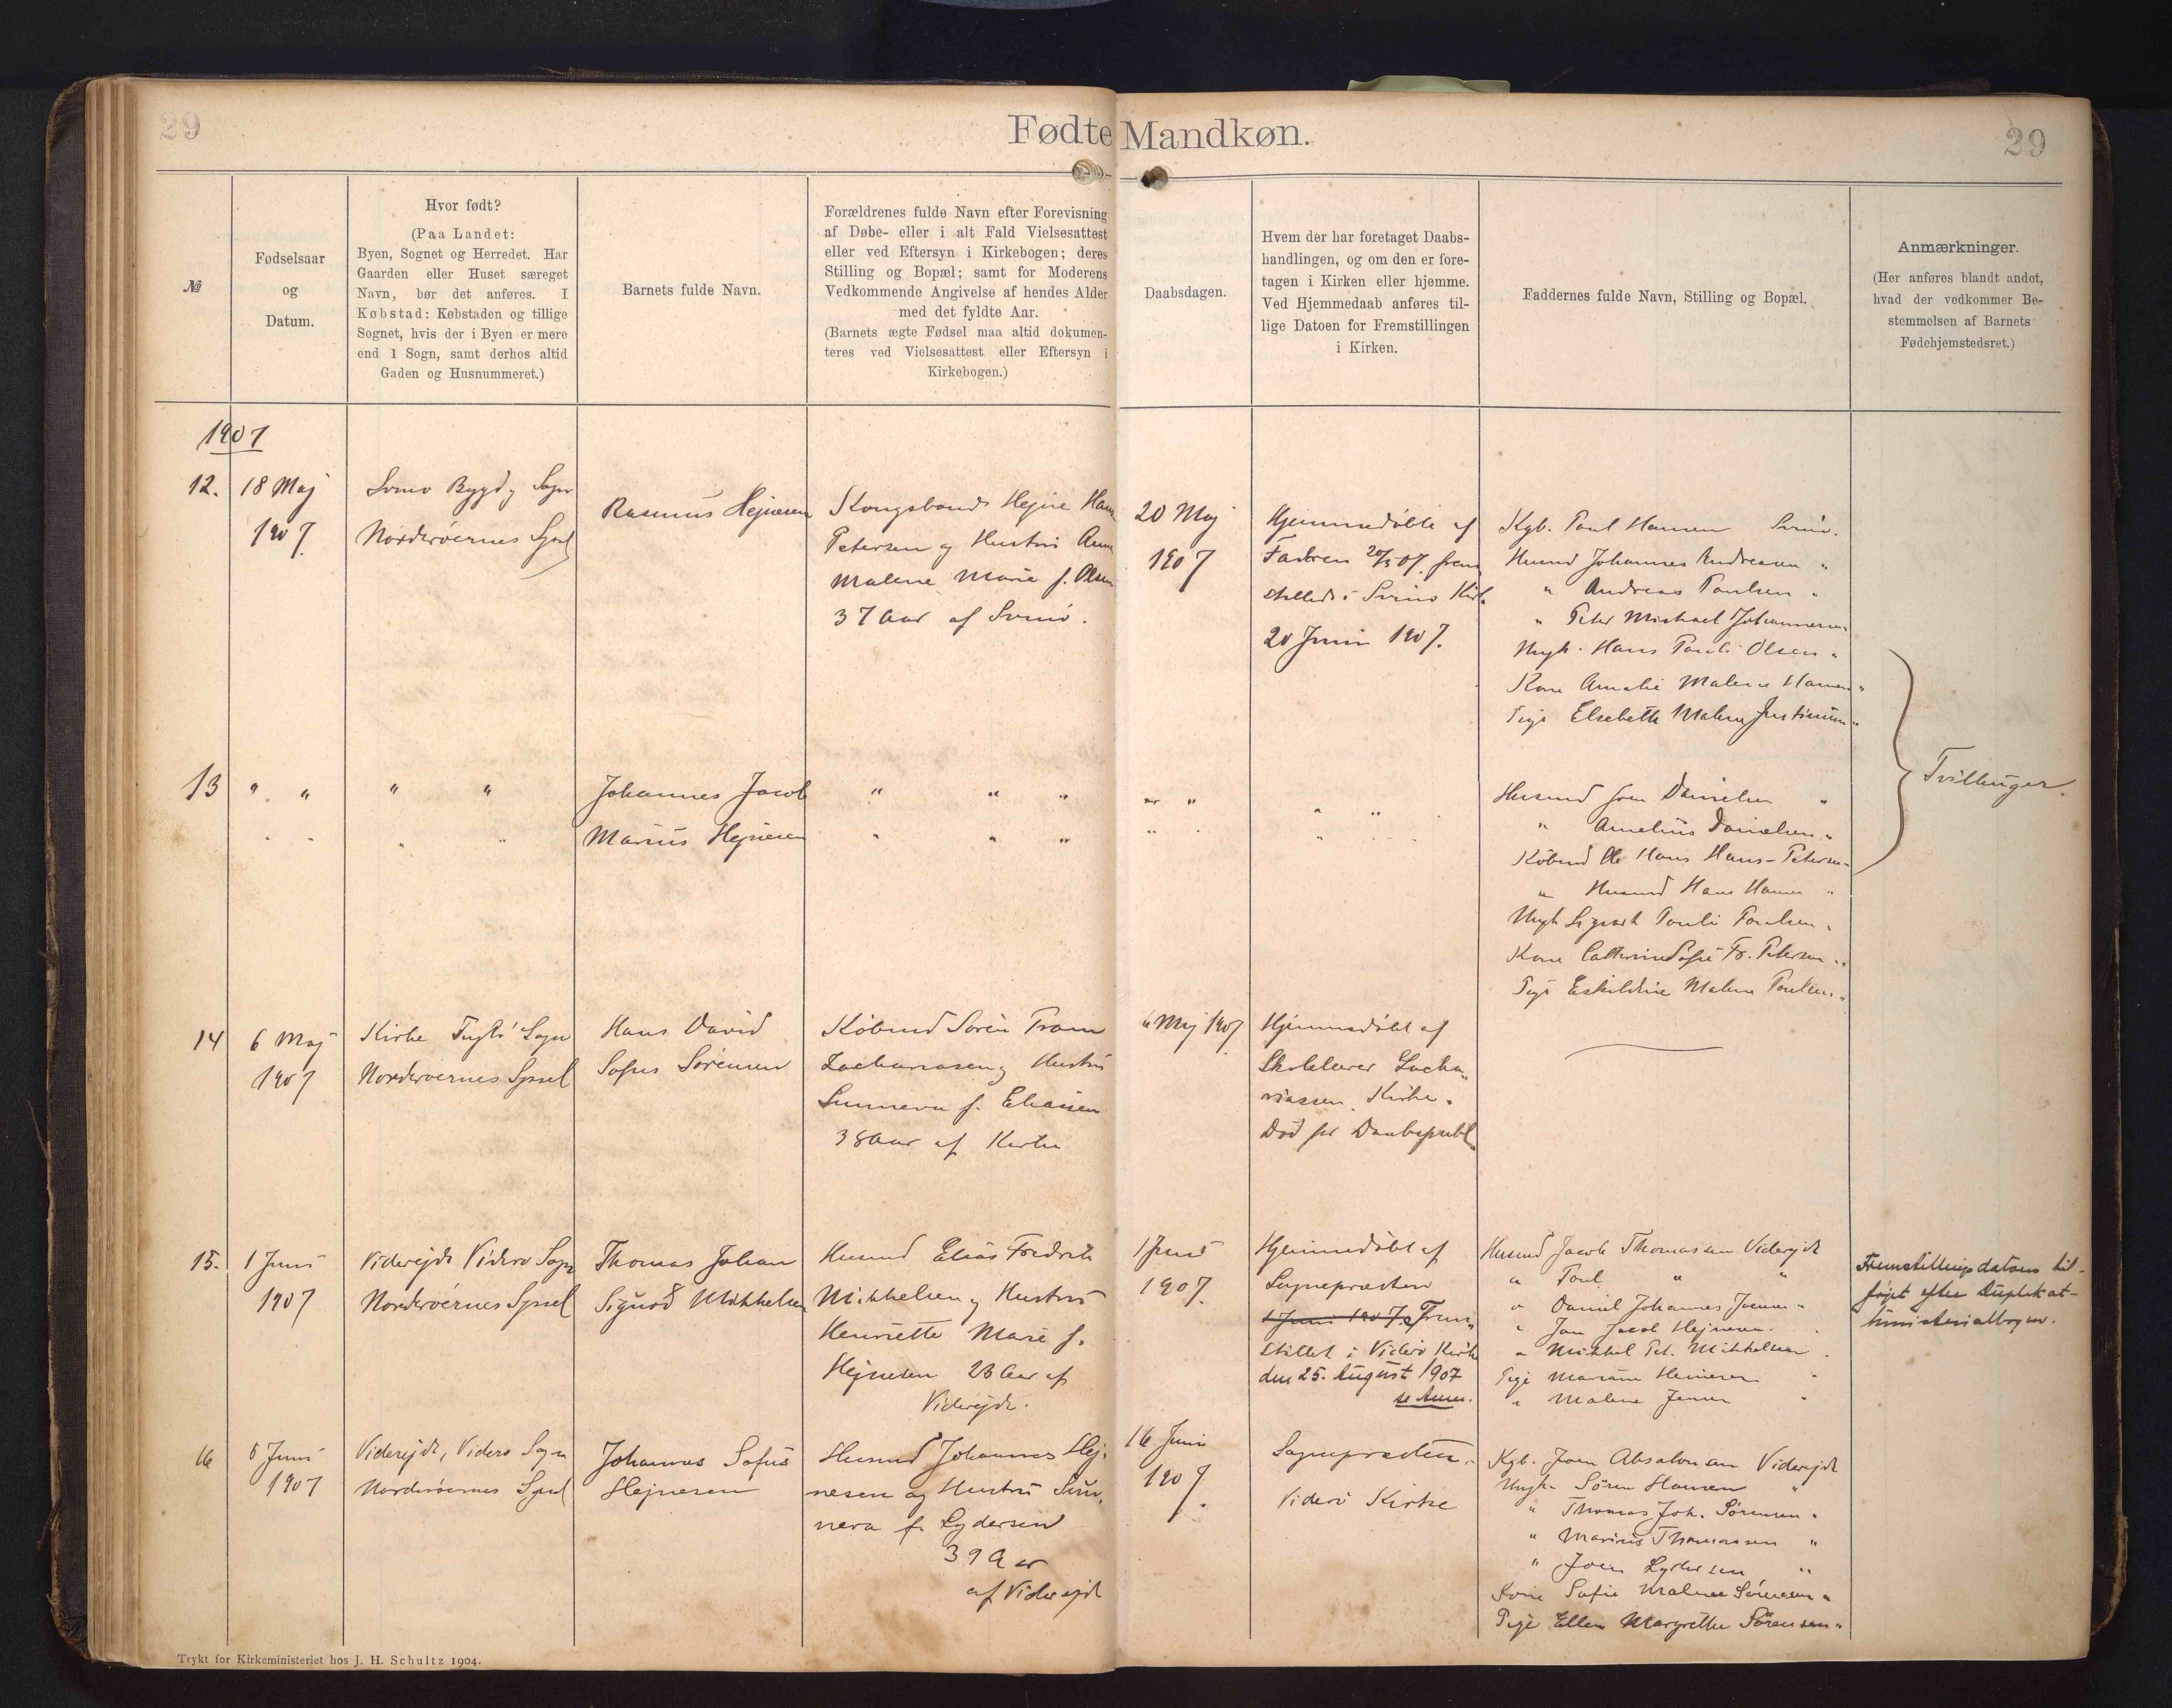 29
Fødte Mandkøn.
29
№
Fødselsaar
og
Datum.
Hvor født?
(Paa Landet:
Byen, Sognet og Herredet. Har
Gaarden eller Huset særeget
Navn, bør det anføres. I
Købstad: Købstaden og tillige
Sognet, hvis der i Byen er mere
end 1 Sogn, samt derhos altid
Gaden og Husnummeret.)
Barnets fulde Navn.
Forældrenes fulde Navn efter Forevisning
af Døbe- eller i alt Fald Vielsesattest
eller ved Eftersyn i Kirkebogen; deres
Stilling og Bopæl; samt for Moderens
Vedkommende Angivelse af hendes Alder
med det fyldte Aar.
(Barnets ægte Fødsel maa altid dokumen-
teres ved Vielsesattest eller Eftersyn i
Kirkebogen.)
Daabsdagen.
Hvem der har foretaget Daabs-
handlingen, og om den er fore-
tagen i Kirken eller hjemme.
Ved Hjemmedaab anføres til-
lige Datoen for Fremstillingen
i Kirken.
Faddernes fulde Navn, Stilling og Bopæl.
Anmærkninger.
(Her anføres blandt andet,
hvad der vedkommer Be-
stemmelsen af Barnets
Fødehjemstedsret.)
1907
12.
18 Maj
1907.
Svinø Bygd og Sogn
Norderøernes Syssel
Rasmus Hejnesen
Kongsbonde Hejne Hans
Petersen og Hustru Anna
Malene Marie f. Olsen
37 Aar af Svinø.
20 Maj
1907
Hjemmedøbte af
Faderen 20/5 07. frem
stillede i Svinø Kirke
20 Juni 1907.
Kgb. Poul Hansen Svinø.
Husmd Johannes Andreasen "
" Andreas Poulsen "
" Peter Michael Johannesen "
Ungk. Hans Pauli Olsen "
Kone Amalie Malene Hansen "
Pige Elsebeth Malene Justinussen "
13
" "
" "
Johannes Jacob
Marius Hejnesen
" " "
" "
" "
Husmd Joen Danielsen "
" Amelius Danielsen "
Købmd Ole Hans Hans-Petersen "
" Husmd Hans Hansen "
Ungk Sigvart Pauli Poulsen "
Kone Cathrine Sofie Fr. Petersen "
Pige Eskildine Malene Poulsen "
Tvillinger.
14
6 Maj
1907
Kirke Fuglø Sogn
Norderøernes Syssel
Hans David
Sofus Sørensen
Købmd Sørin Trom
Zachariasen og Hustru
Sunneva f. Eliasen
38 Aar af Kirke
6 Maj 1907
Hjemmedøbt af
Skolelærer Zacha-
riassen Kirke.
Død før Daabspubl.
15.
1 Juni
1907
Viderejde Viderø Sogn
Norderøernes Syssel
Thomas Johan
Sigurd Mikkelsen
Husmd Elias Fredrik
Mikkelsen og Hustru
Henriette Marie f.
Hejnesen 23 Aar af
Viderejde.
1 Juni
1907.
Hjemmedøbt af
Sognepræsten
1 Juni 1907. Frem-
stillet i Viderø Kirke
den 25. August 1907
se Anm.
Husmd Jacob Thomassen Viderejde
" Poul " "
" Daniel Johannes Joensen "
" Jon Jacob Hejnesen "
" Mikkel Pet. Mikkelsen "
Pige Mariane Heinesen "
" Malene Jensen "
Fremstillingsdatoen til-
føjet efter Duplikat-
ministerialbogen.
16
8 Juni
1907
Viderejde, Viderø Sogn
Norderøernes Syssel
Johannes Sofus
Hejnesen
Husmd Johannes Hej-
nesen og Hustru Sun-
neva f. Lydersen
39 Aar
af Viderejde
16 Juni
1907.
Sognepræsten.
Viderø Kirke
Kgb. Joen Absalonsen Viderejde
Ungk. Søren Hansen "
" Thomas Joh. Sørensen "
" Marius Thomassen "
" Joen Lydersen "
Kone Sofie Malene Sørensen "
Pige Ellen Margrethe Sørensen "
Trykt for Kirkeministeriet hos J. H. Schultz 1904.